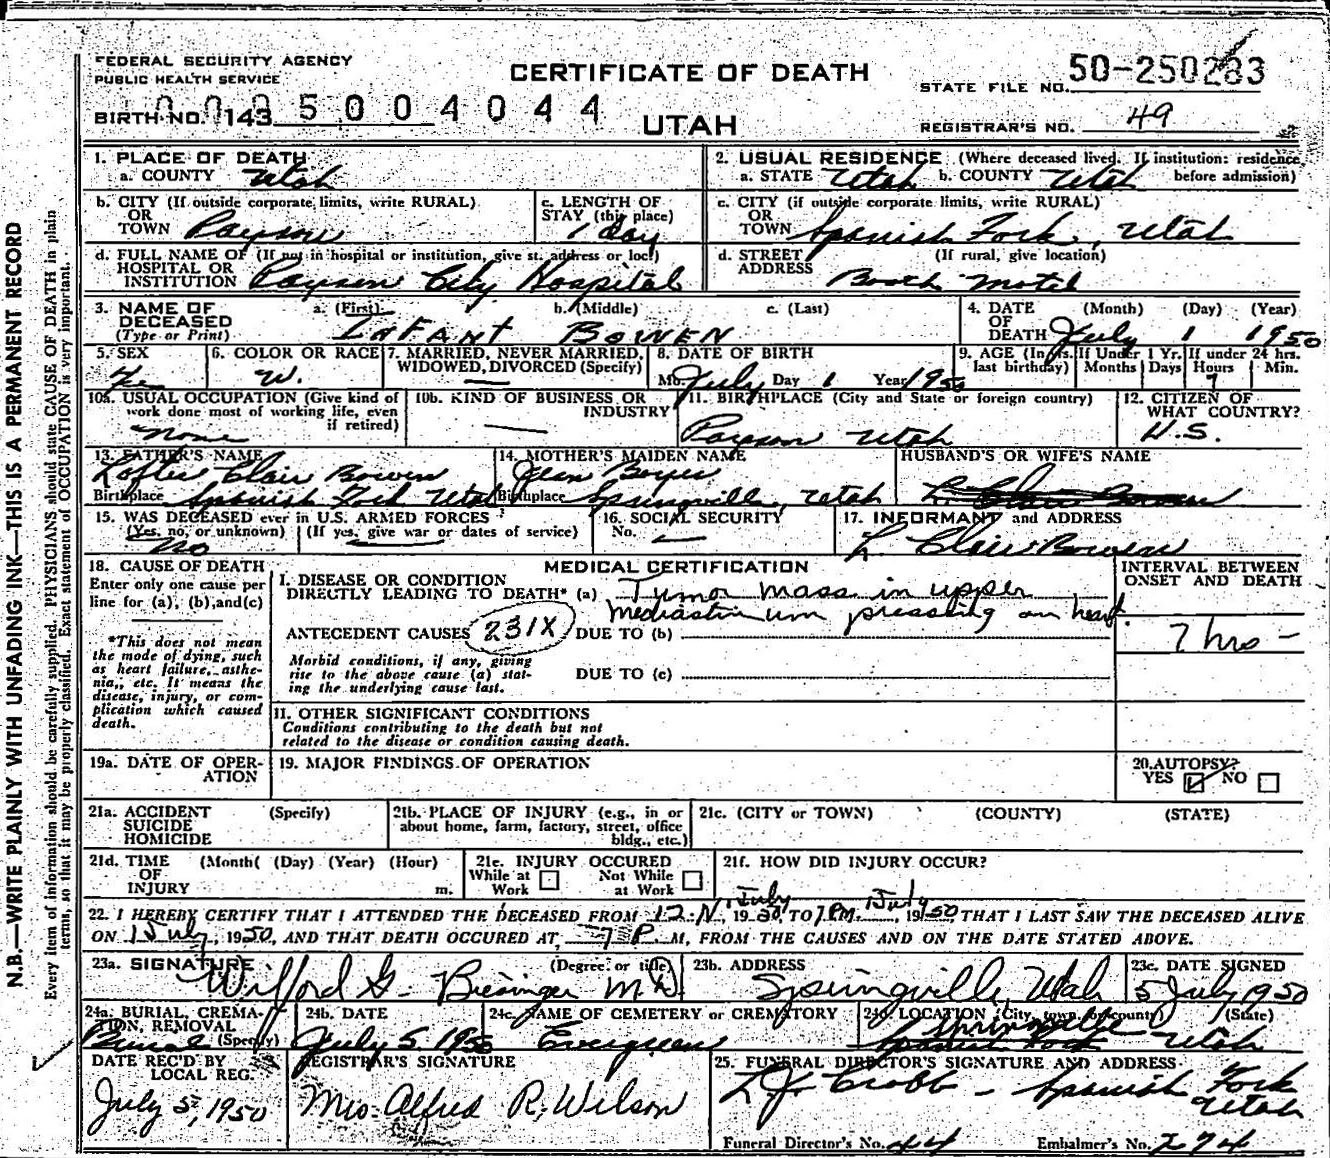 FEDERAL SECURITY AGENCY
PUBLIC HEALTH SERVICE
CERTIFICATE OF DEATH
STATE FILE NO. 50-250283
BIRTH NO. 143 5004044
UTAH
REGISTRAR'S NO. 49
N.B.—WRITE PLAINLY WITH UNFADING INK—THIS IS A PERMANENT RECORD
Every item of information should be carefully supplied. PHYSICIANS should state CAUSE OF DEATH in plain
terms, so that it may be properly classified. Exact statement of OCCUPATION is very important.
1. PLACE OF DEATH
a. COUNTY Utah
2. USUAL RESIDENCE (Where deceased lived. If institution: residence
a. STATE Utah b. COUNTY Utah before admission)
b. CITY (If outside corporate limits, write RURAL)
OR
TOWN Payson
c. LENGTH OF
STAY (this place)
1 day
c. CITY (if outside corporate limits, write RURAL)
OR
TOWN Spanish Fork, Utah
d. FULL NAME OF (If not in hospital or institution, give st. address or loc.)
HOSPITAL OR
INSTITUTION Payson City Hospital
d. STREET (If rural, give location)
ADDRESS Booth Motel
3. NAME OF a. (First) b. (Middle) c. (Last)
DECEASED
(Type or Print) INFANT BOWEN
4. DATE (Month) (Day) (Year)
OF
DEATH July 1 1950
5. SEX
Fe
6. COLOR OR RACE
W.
7. MARRIED, NEVER MARRIED,
WIDOWED, DIVORCED (Specify)
—
8. DATE OF BIRTH
Mo. July Day 1 Year 1950
9. AGE (In yrs. last birthday)
If Under 1 Yr.
Months Days
If under 24 hrs.
Hours Min.
7
10a. USUAL OCCUPATION (Give kind of
work done most of working life, even
if retired)
none
10b. KIND OF BUSINESS OR
INDUSTRY
—
11. BIRTHPLACE (City and State or foreign country)
Payson Utah
12. CITIZEN OF
WHAT COUNTRY?
U.S.
13. FATHER'S NAME
Lofter Clair Bowen
Birthplace Spanish Fork Utah
14. MOTHER'S MAIDEN NAME
Jean Boyer
Birthplace Springville, Utah
HUSBAND'S OR WIFE'S NAME
L. Clair Bowen
15. WAS DECEASED ever in U.S. ARMED FORCES
(Yes, no, or unknown) (If yes, give war or dates of service)
No —
16. SOCIAL SECURITY
No. —
17. INFORMANT and ADDRESS
L. Clair Bowen
18. CAUSE OF DEATH
Enter only one cause per
line for (a), (b), and (c)
*This does not mean
the mode of dying, such
as heart failure, asthe-
nia, etc. It means the
disease, injury, or com-
plication which caused
death.
MEDICAL CERTIFICATION
INTERVAL BETWEEN
ONSET AND DEATH
I. DISEASE OR CONDITION
DIRECTLY LEADING TO DEATH* (a) Tumor mass in upper
mediastinum pressing on heart.
7 hrs –
ANTECEDENT CAUSES 231X DUE TO (b)
Morbid conditions, if any, giving
rise to the above cause (a) stat-
ing the underlying cause last.
DUE TO (c)
II. OTHER SIGNIFICANT CONDITIONS
Conditions contributing to the death but not
related to the disease or condition causing death.
19a. DATE OF OPER-
ATION
19. MAJOR FINDINGS OF OPERATION
20. AUTOPSY?
YES NO
21a. ACCIDENT (Specify)
SUICIDE
HOMICIDE
21b. PLACE OF INJURY (e.g., in or
about home, farm, factory, street, office
bldg., etc.)
21c. (CITY or TOWN) (COUNTY) (STATE)
21d. TIME (Month( (Day) (Year) (Hour)
OF
INJURY m.
21e. INJURY OCCURED
While at Not While
Work at Work
21f. HOW DID INJURY OCCUR?
July July
22. I HEREBY CERTIFY THAT I ATTENDED THE DECEASED FROM 12 N, 1950, TO 7 P.M., 1950 THAT I LAST SAW THE DECEASED ALIVE
ON 1 July, 1950, AND THAT DEATH OCCURED AT 7 P. M, FROM THE CAUSES AND ON THE DATE STATED ABOVE.
23a. SIGNATURE (Degree or title)
Wilford G. Biesinger M.D.
23b. ADDRESS
Springville, Utah
23c. DATE SIGNED
5 July 1950
24a. BURIAL, CREMA-
TION, REMOVAL
(Specify)
Burial
24b. DATE
July 5 1950
24c. NAME OF CEMETERY or CREMATORY
Evergreen
24d. LOCATION (City, town, or county) (State)
Springville
Spanish Fork Utah
DATE REC'D BY
LOCAL REG.
July 5, 1950
REGISTRAR'S SIGNATURE
Mrs. Alfred R. Wilson
25. FUNERAL DIRECTOR'S SIGNATURE AND ADDRESS
L J Crabb – Spanish Fork
Utah
Funeral Director's No. 44 Embalmer's No. 274